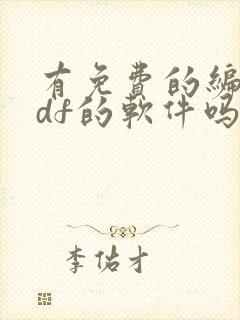 有免费的编
df的软件吗
李佑才